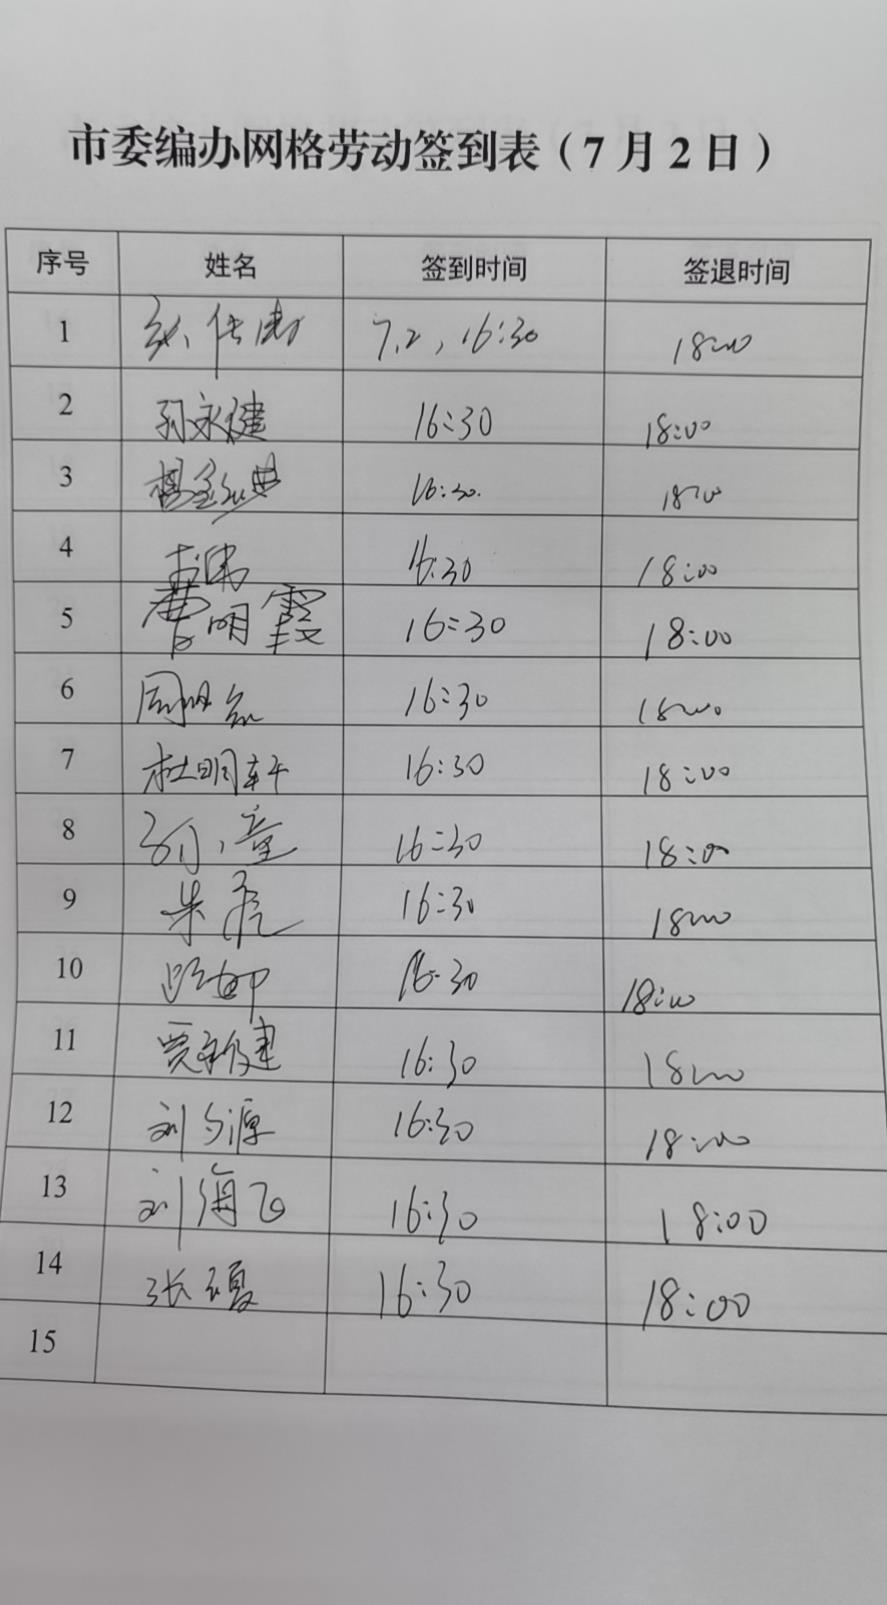 市委编办网格劳动签到表（7月2日）
序号 姓名 签到时间 签退时间
1 7.2，16:30 18:00
2 孙永健 16:30 18:00
3 16:30. 18:00
4 16:30 18:00
5 曹明霞 16:30 18:00
6 16:30 18:00
7 杜明轩 16:30 18:00
8 16:30 18:00
9 朱虎 16:30 18:00
10 16:30 18:00
11 贾新建 16:30 18:00
12 刘 源 16:30 18:00
13 刘海飞 16:30 18:00
14 张 16:30 18:00
15